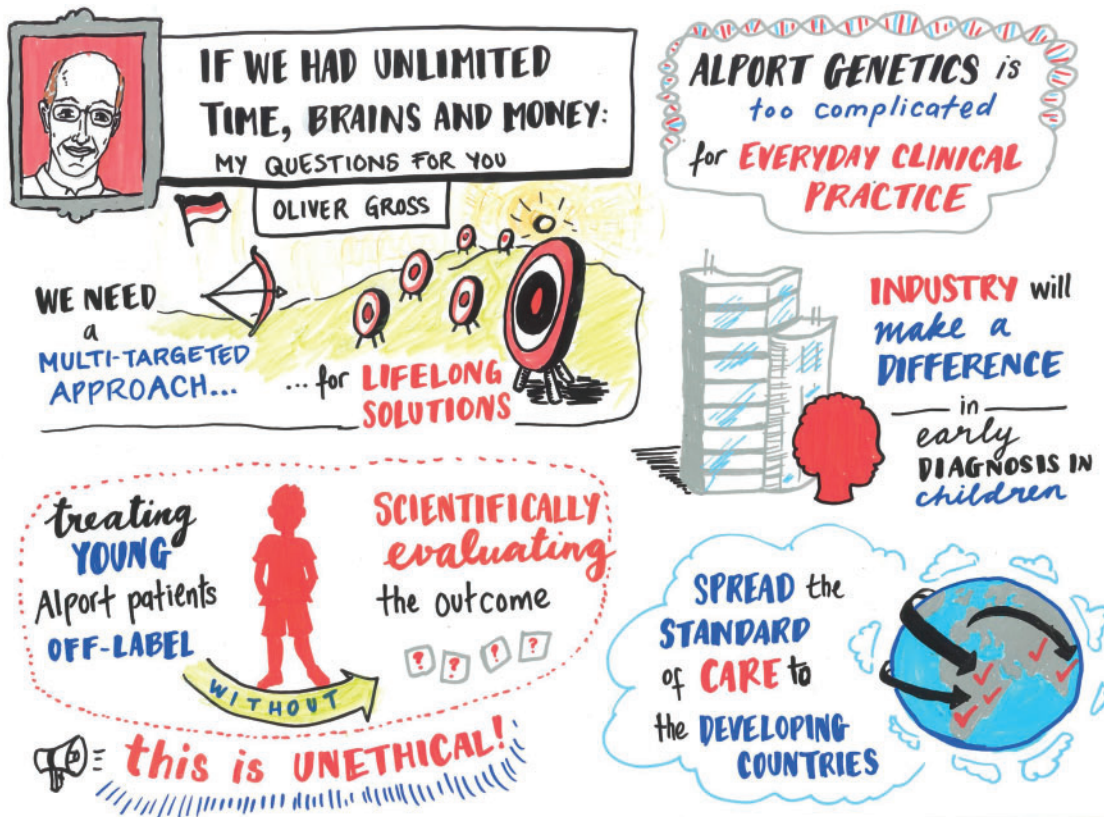 IF WE HAD UNLIMITED
TIME, BRAINS AND MONEY:
MY QUESTIONS FOR YOU
OLIVER GROSS
WE NEED
a
MULTI-TARGETED
APPROACH...
...for LIFELONG
SOLUTIONS
ALPORT GENETICS is
too complicated
for EVERYDAY CLINICAL
PRACTICE
INDUSTRY will
make a
DIFFERENCE
in
early
DIAGNOSIS IN
children
treating
YOUNG
Alport patients
OFF-LABEL
WITHOUT
SCIENTIFICALLY
evaluating
the outcome
? ? ? ?
this is UNETHICAL!
SPREAD the
STANDARD
of CARE to
the DEVELOPING
COUNTRIES